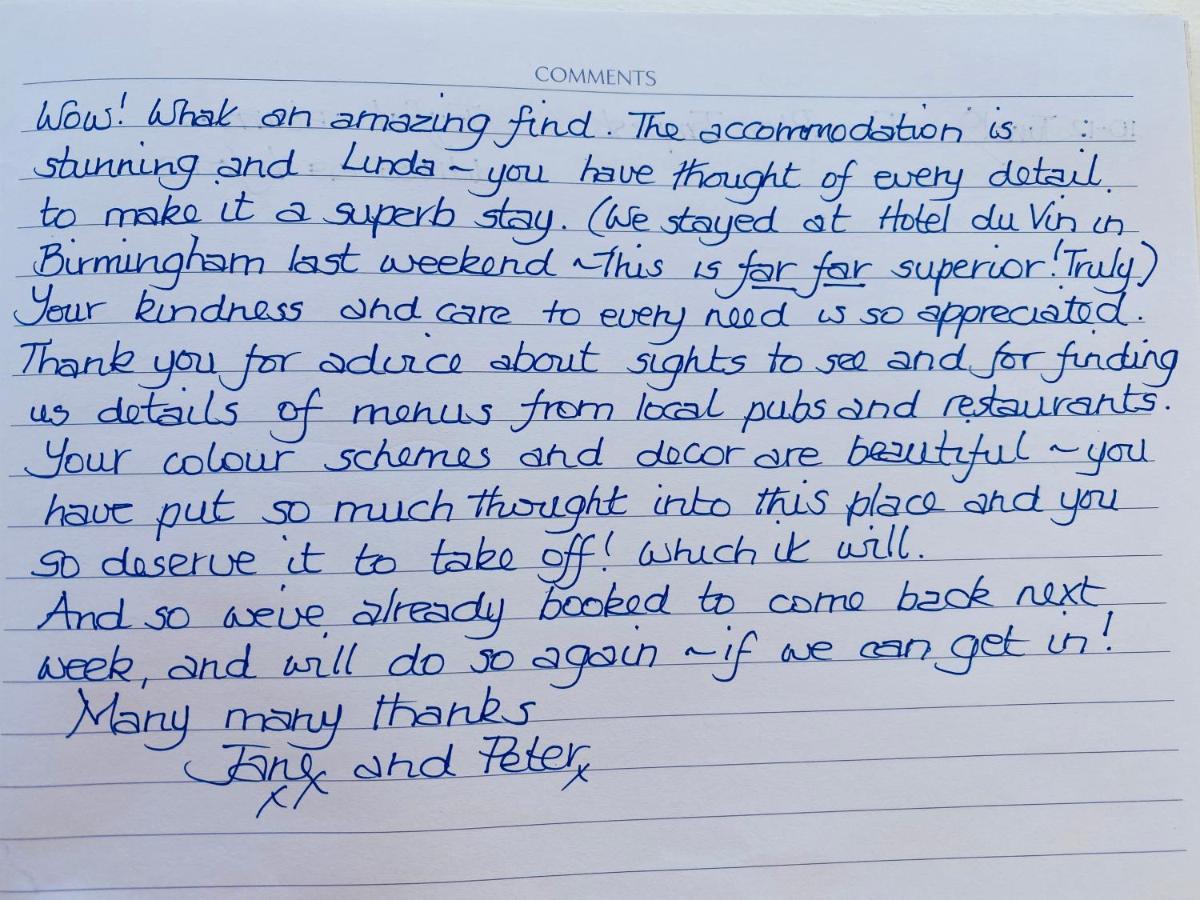 COMMENTS
Wow! What an amazing find. The accommodation is
stunning and Linda ~ you have thought of every detail
to make it a superb stay. (We stayed at Hotel du Vin in
Birmingham last weekend ~ this is far far superior! Truly)
Your kindness and care to every need is so appreciated.
Thank you for advice about sights to see and for finding
us details of menus from local pubs and restaurants.
Your colour schemes and decor are beautiful ~ you
have put so much thought into this place and you
so deserve it to take off! which it will.
And so we've already booked to come back next
week, and will do so again ~ if we can get in!
Many many thanks
Jane and Peter x
xx